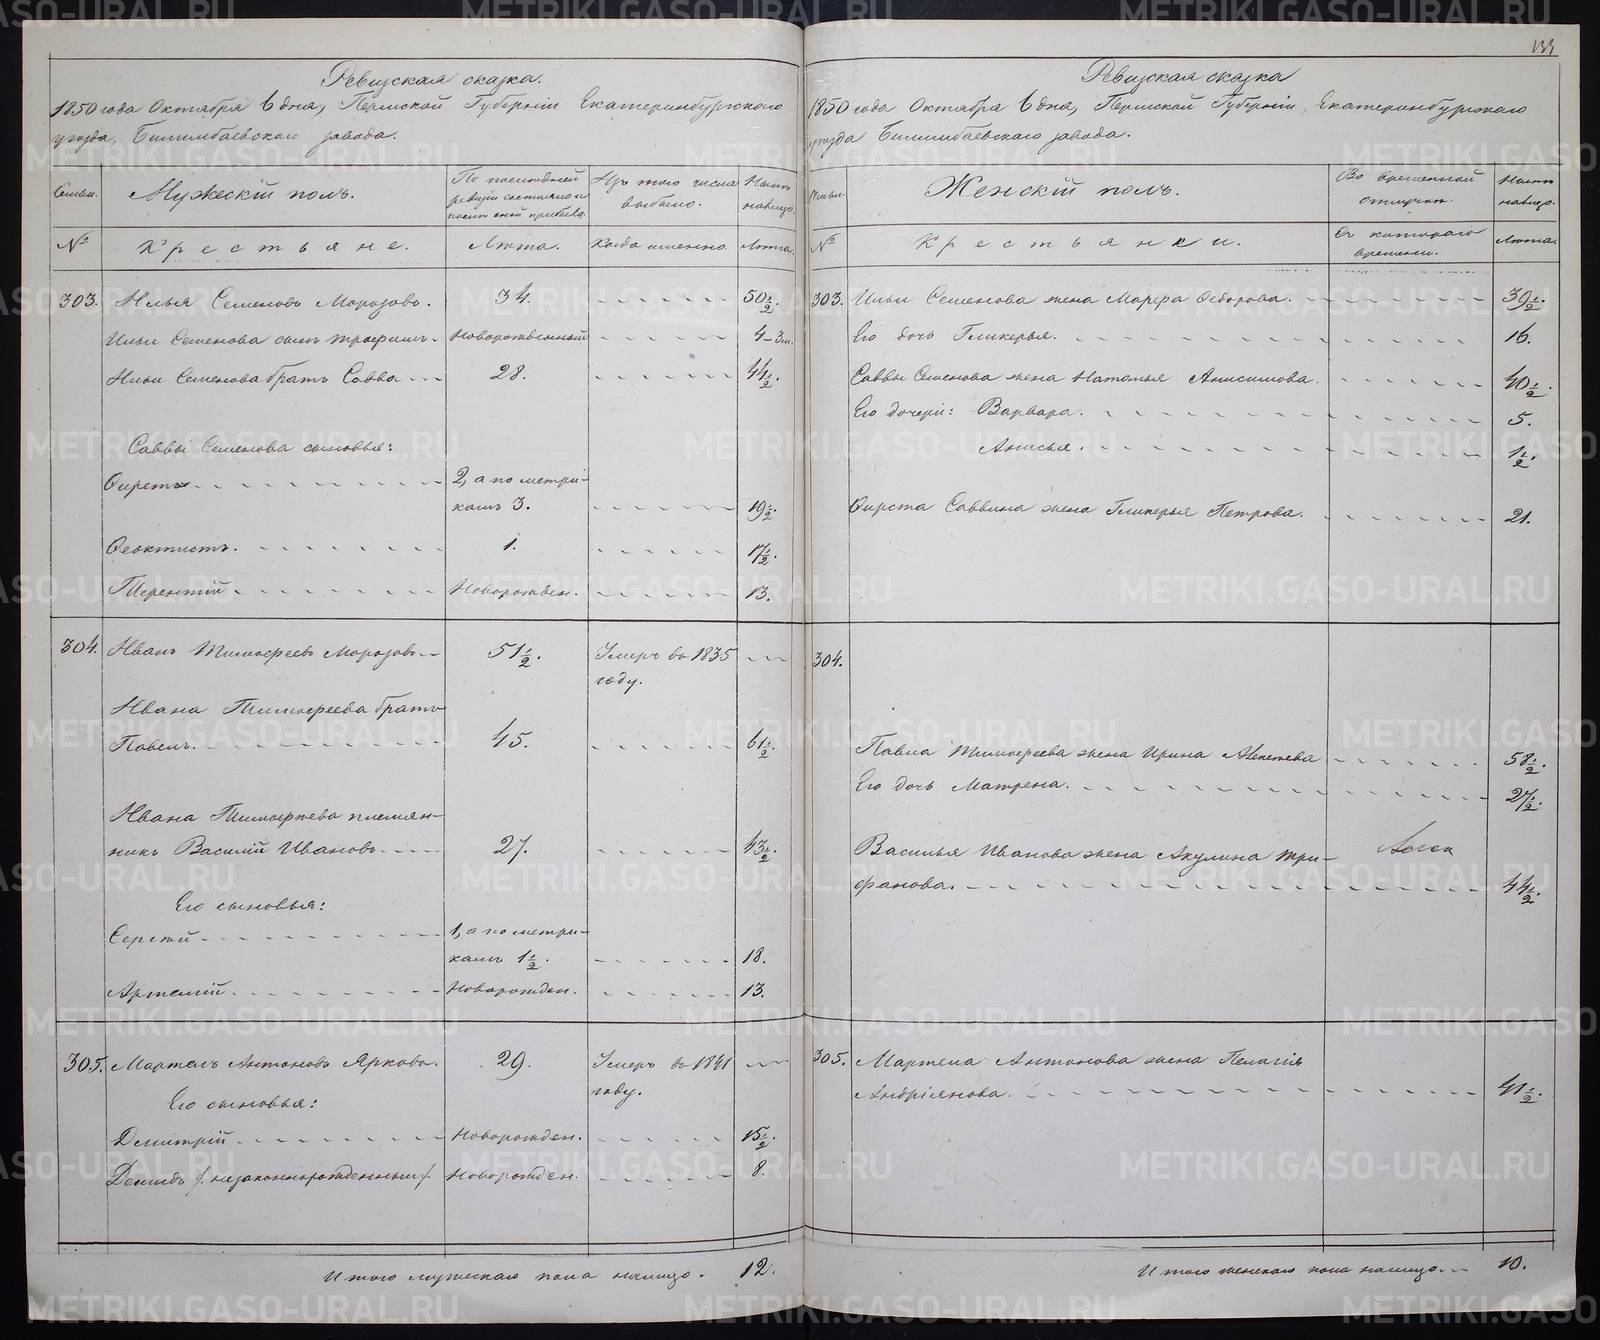 133
Ревизская сказка.
1850 года Октября 6 дня, Пермской Губерніи Екатеринбургскаго
уезда, Билимбаевскаго завода.
Семьи. Мужескій полъ. По последней ревизіи состояло и после оной прибыло Изъ того числа выбыло. Ныне налицо.
№ Крестьяне. Лета. Когда именно. Лета.
303. Илья Семеновъ Морозовъ. 34. 50½.
Ильи Семенова сынъ Трофимъ. Новорожденный 4-3м.
Ильи Семенова братъ Савва 28. 44½.
Саввы Семенова сыновья:
Фирстъ 2, а по метри-
камъ 3. 19½
Феоктистъ. 1. 17½
Терентій Новорожден. 13.
304. Иванъ Тимофеевъ Морозовъ 51½. Умеръ въ 1835
году.
Ивана Тимофеева братъ
Павелъ. 45. 61½.
Ивана Тимофеева племян-
никъ Василій Ивановъ 27. 43½.
Его сыновья:
Сергей 1, а по метри-
камъ 1½. 18.
Артемій. Новорожден. 13.
305. Мартелъ Антоновъ Ярковъ. 29. Умеръ въ 1841
году.
Его сыновья:
Дмитрій Новорожден. 15½.
Демидъ /незаконнорожденный/ Новорожден. 8.
Итого мужескаго пола налицо. 12.
Ревизская сказка
1850 года Октября 6 дня, Пермской Губерніи, Екатеринбургскаго
уезда Билимбаевскаго завода.
Семьи. Женскій полъ. Во временной отлучке. Ныне налицо.
№ Крестьянки. Съ котораго времени. Лета.
303. Ильи Семенова жена Марфа Федорова. 39½.
Его дочь Гликерья. 16.
Саввы Семенова жена Наталья Анисимова. 40½.
Его дочери: Варвара. 5.
Анисья. 1½.
Фирста Саввина жена Гликерья Петрова. 21.
304.
Павла Тимофеева жена Ирина 58½.
Его дочь Матрена. 27½.
Василья Иванова жена Акулина Три-
фанова. 44½.
305. Мартела Антонова жена Пелагія
Андріянова. 41½.
Итого женскаго пола налицо 10.
METRIKI.GASO-URAL.RU